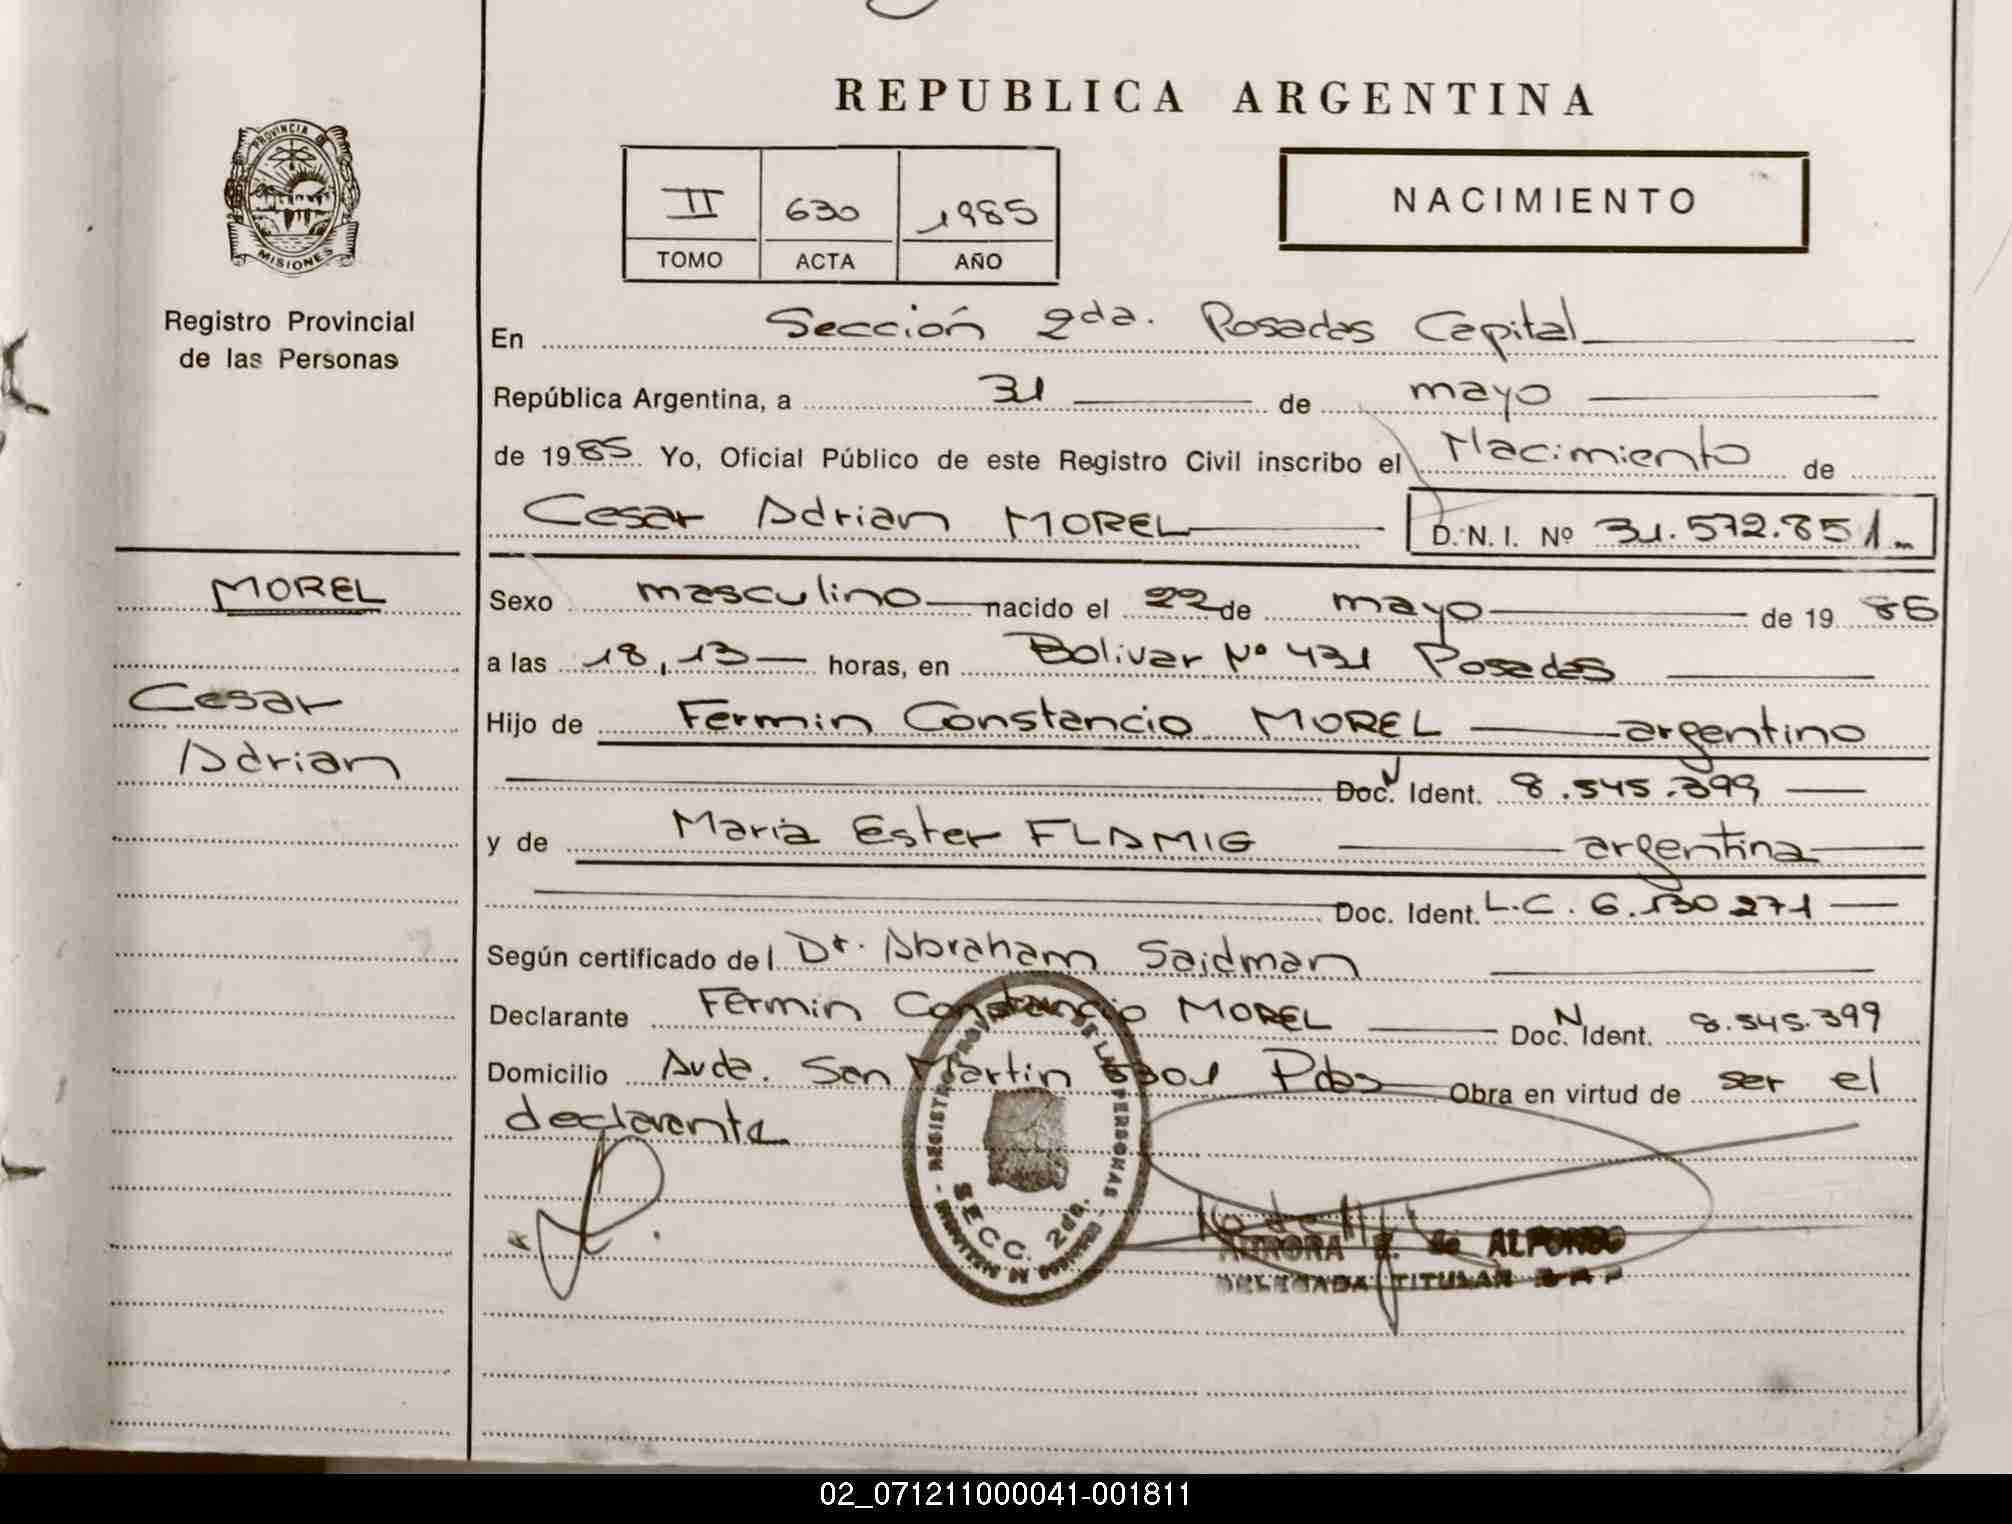 REPUBLICA ARGENTINA
PROVINCIA DE
MISIONES
Registro Provincial
de las Personas
II 630 1985
TOMO ACTA AÑO
NACIMIENTO
En Sección 2da. Posadas Capital
República Argentina, a 31 de mayo
de 1985 Yo, Oficial Público de este Registro Civil inscribo el Nacimiento de
Cesar Adrian MOREL D.N.I. Nº 31.572.851
MOREL
Cesar
Adrian
Sexo masculino nacido el 22 de mayo de 1985
a las 18,13 horas, en Bolivar Nº 431 Posadas
Hijo de Fermin Constancio MOREL argentino
Doc. N Ident. 8.545.399
y de Maria Ester FLAMIG argentina
Doc. Ident. L.C. 6.130.271
Según certificado del Dr. Abraham Saidman
Declarante Fermin Constancio MOREL Doc. N Ident. 8.545.399
Domicilio Avda. San Martin 5301 Pdas Obra en virtud de ser el
declarante
SECC. 2da.
AURORA de ALFONSO
DELEGADA TITULAR
02_071211000041-001811